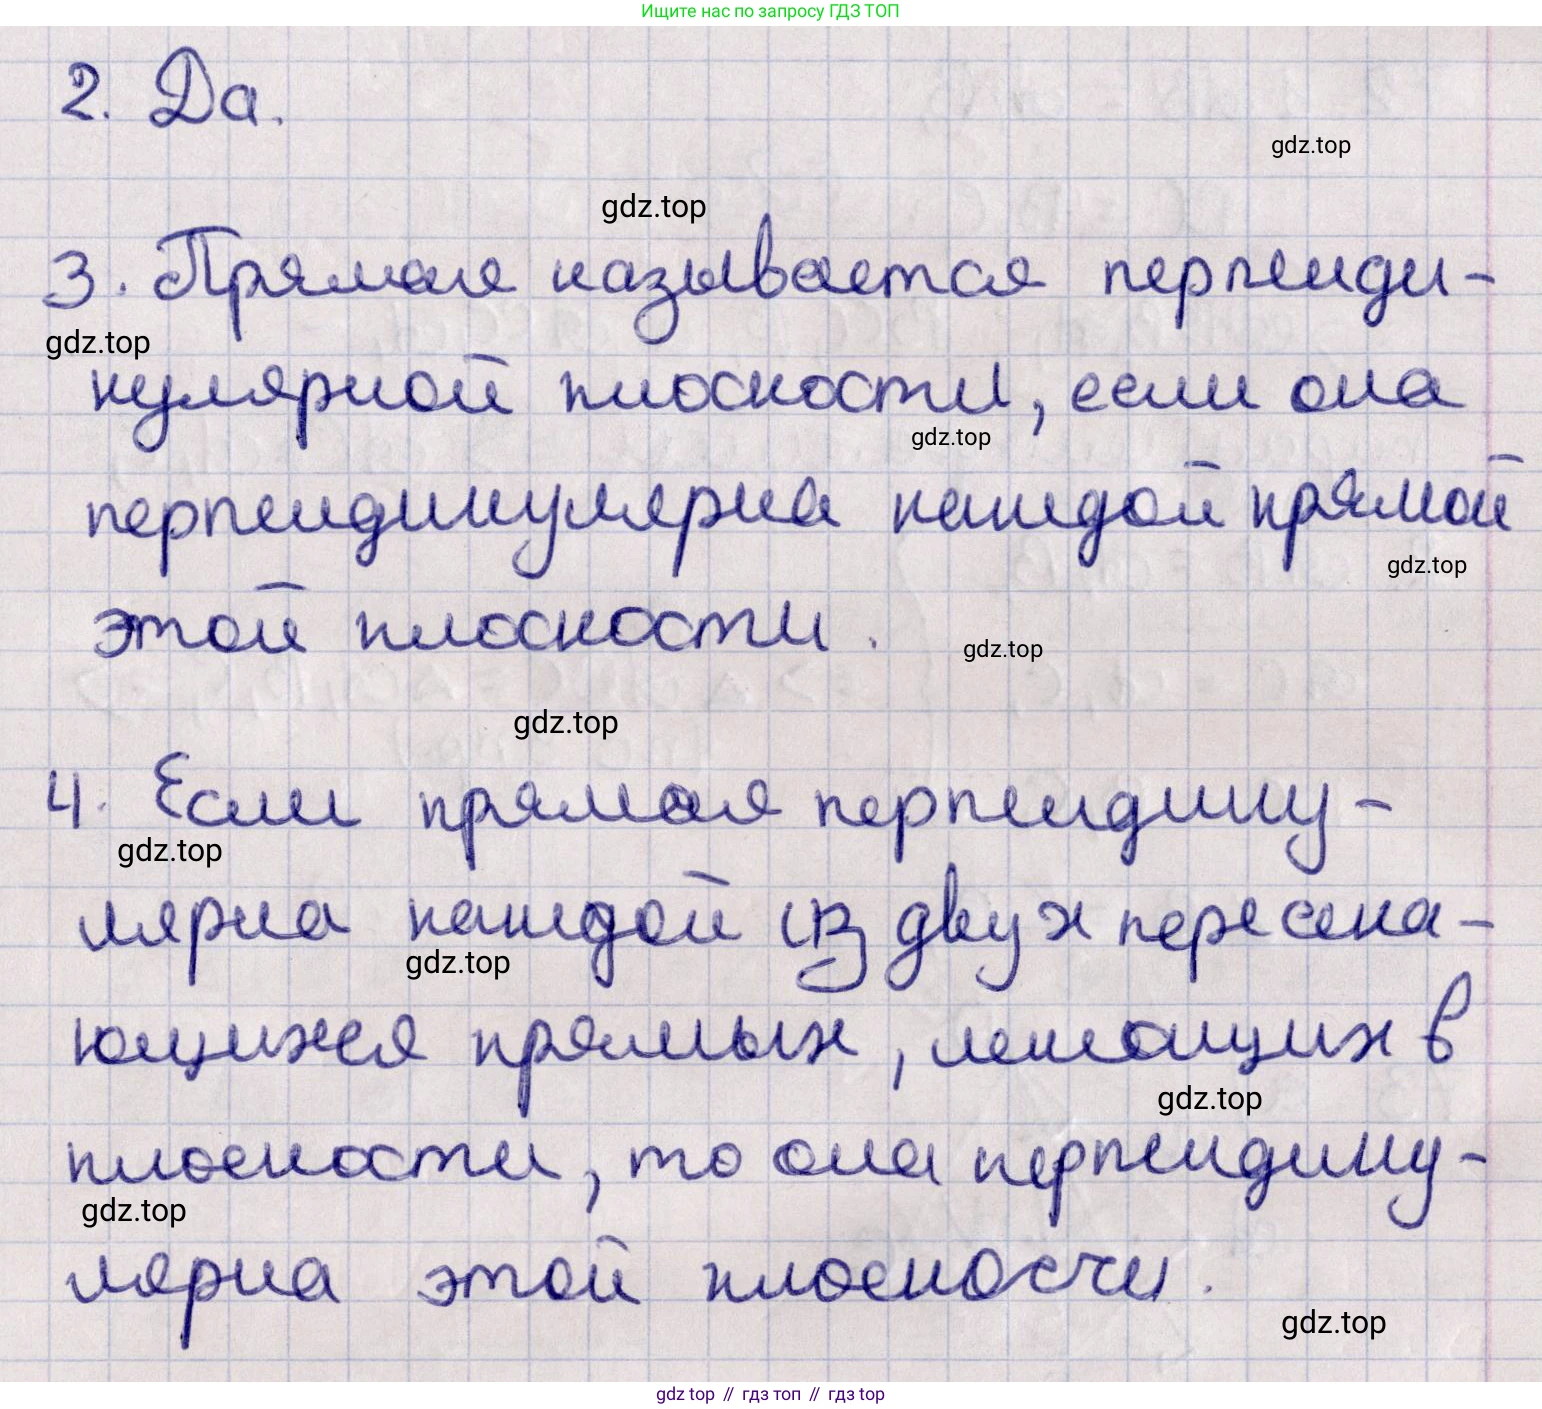 Ищите нас по запросу ГДЗ ТОП
2. Да.
gdz.top
gdz.top
3. Прямая называется перпенди-
gdz.top
кулярной плоскости, если она
gdz.top
перпендикулярна каждой прямой
gdz.top
этой плоскости.
gdz.top
gdz.top
4. Если прямая перпендику-
gdz.top
лярна каждой из двух пересека-
gdz.top
ющихся прямых, лежащих в
gdz.top
плоскости, то она перпендику-
gdz.top
лярна этой плоскости.
gdz.top
gdz top // гдз топ // gdz top